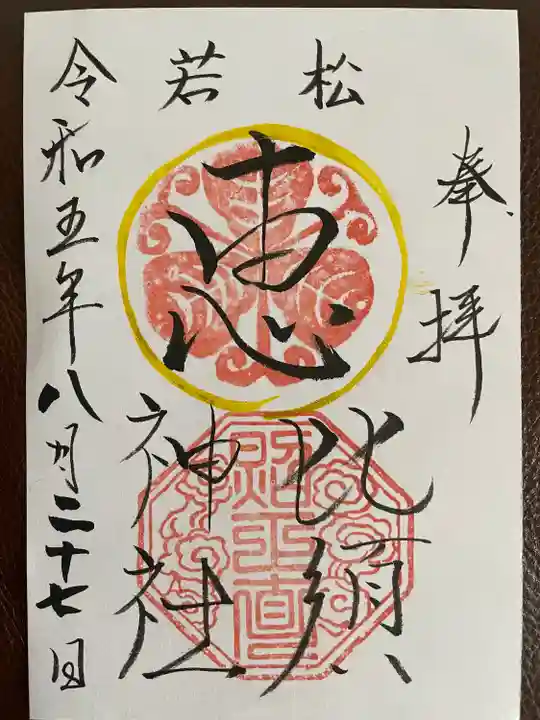 奉拝
若松
恵比須
神社
令和五年八月二十七日